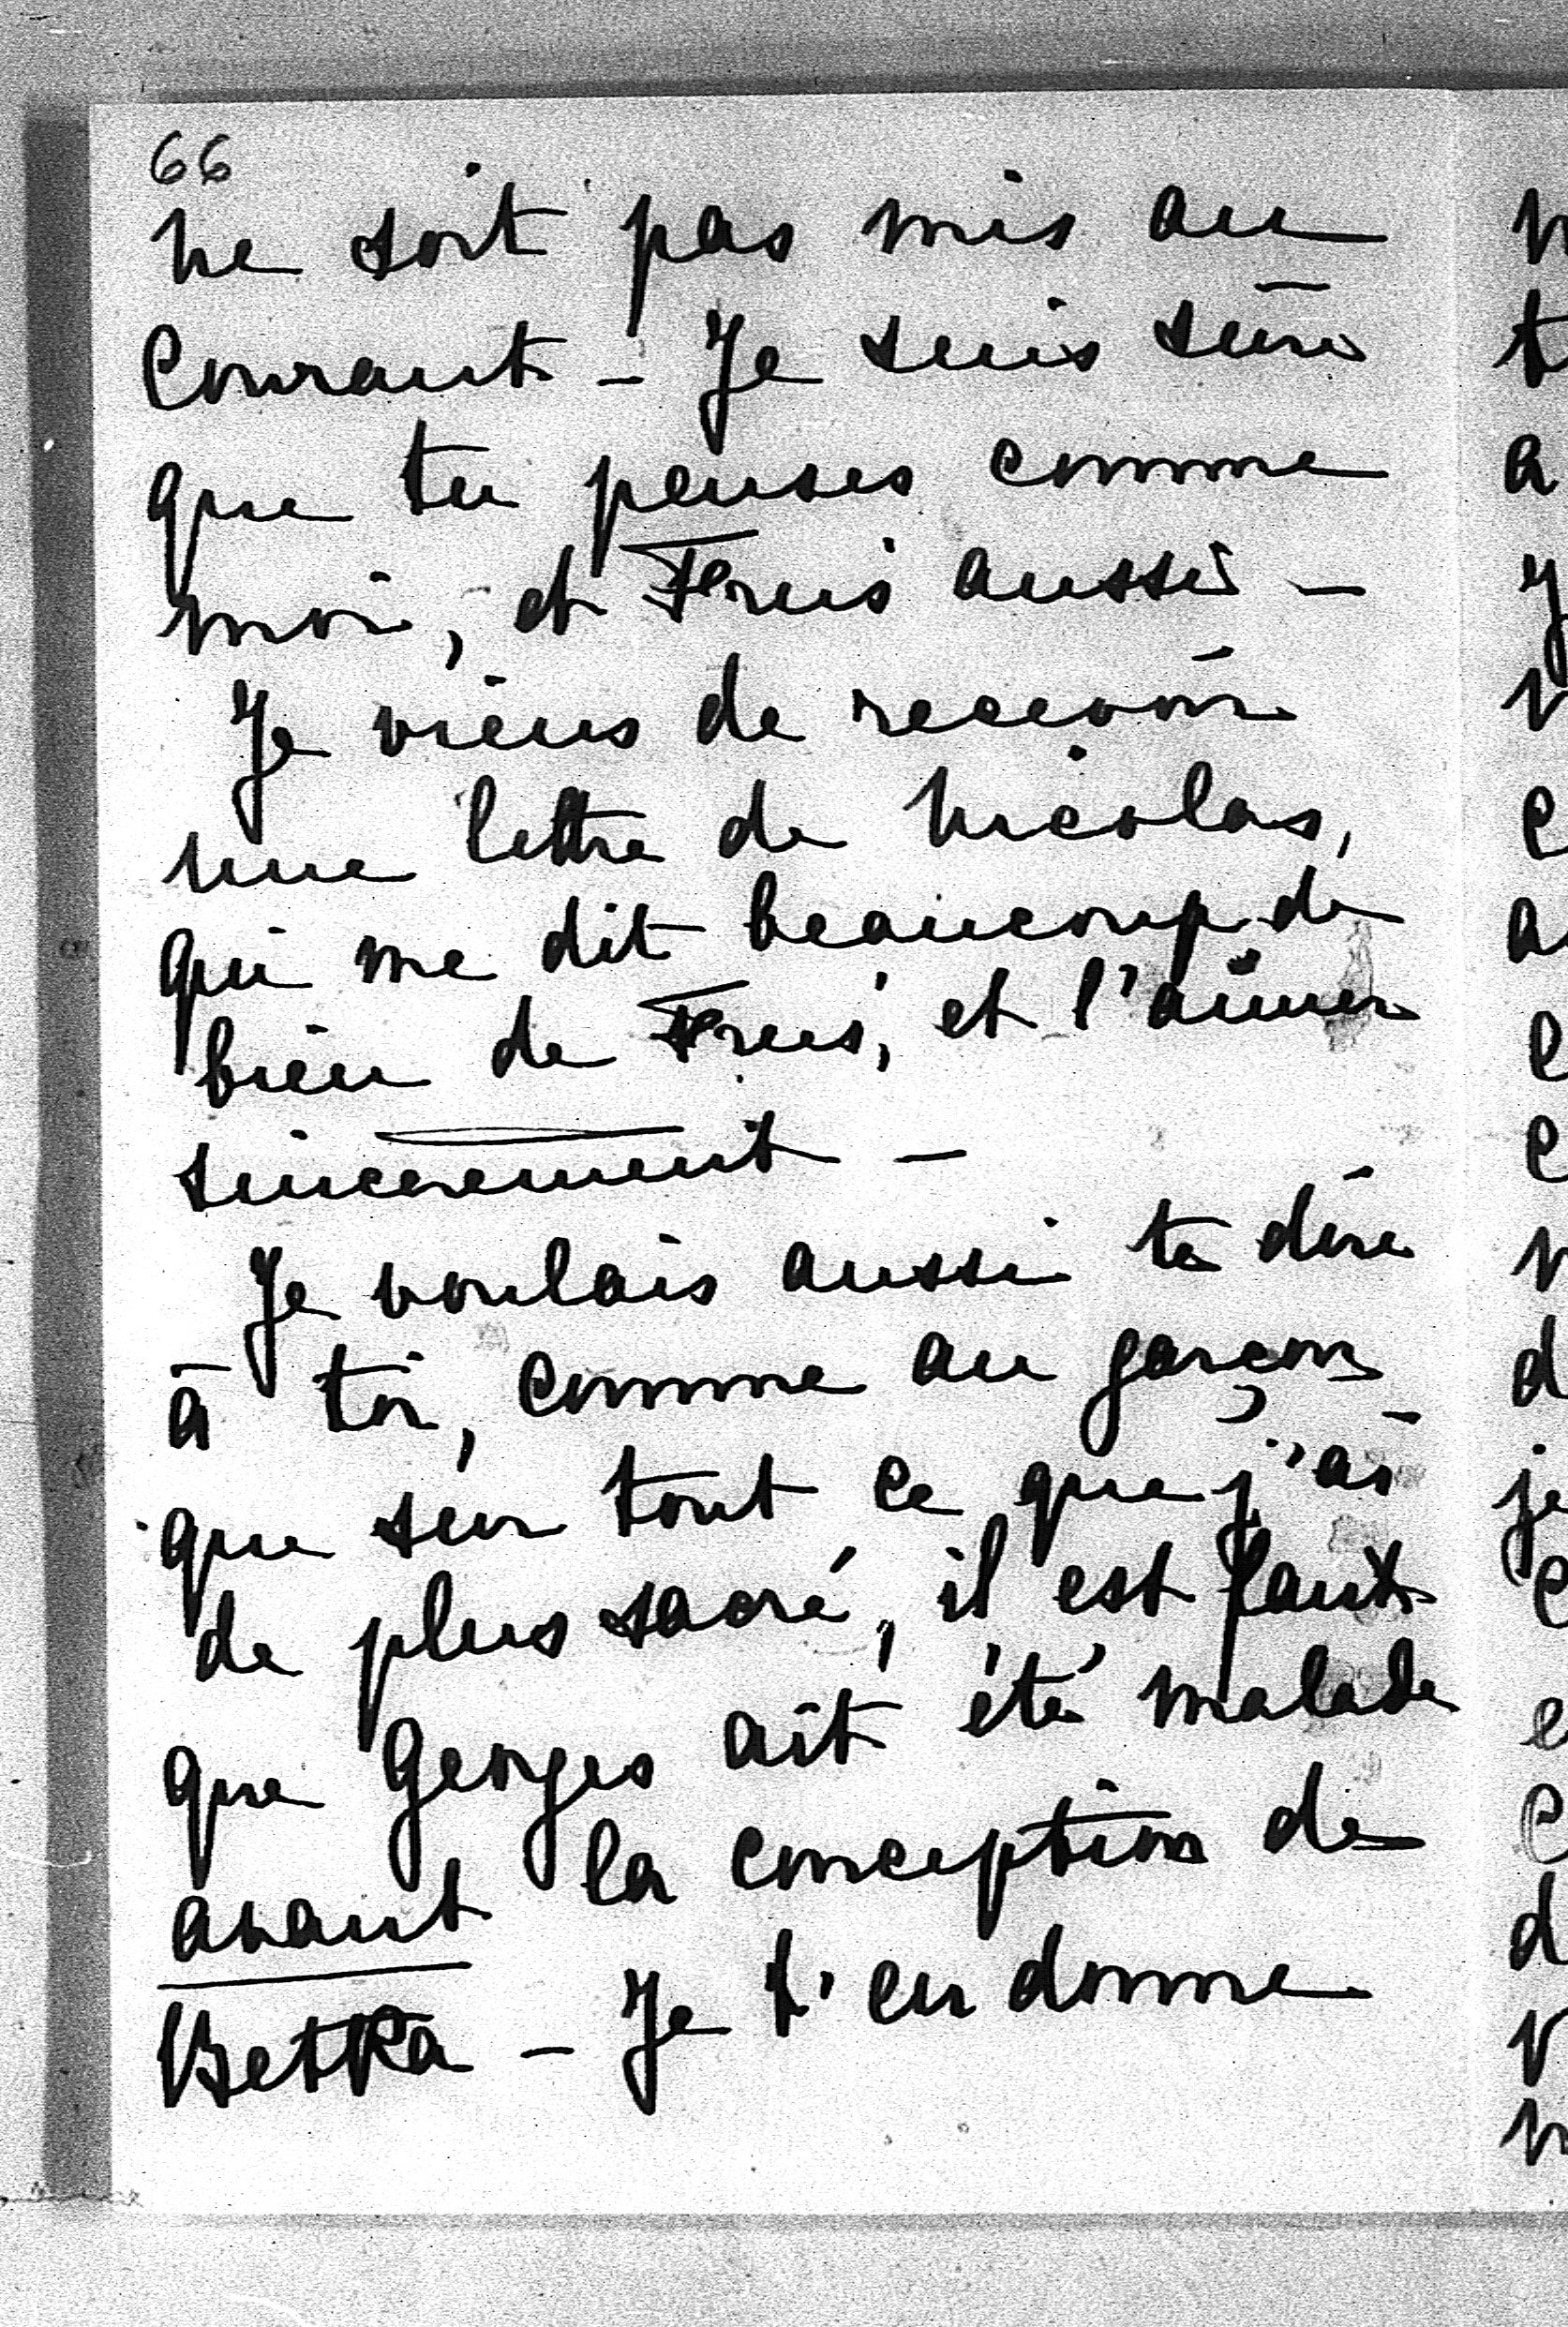 66
ne soit pas mis au
courant - Je suis sûre
que tu penses comme
moi, et Freis aussi -
Je viens de recevoir
une lettre de Nicolas,
qui me dit beaucoup de
bien de Freis, et l'aimer
sincerement -
Je voulais aussi te dire
à toi, comme au garçon,
que sur tout ce que j'ai
de plus sacré, il est faux
que Georges ait été malade
avant la conception de
Betka - Je t'en donne